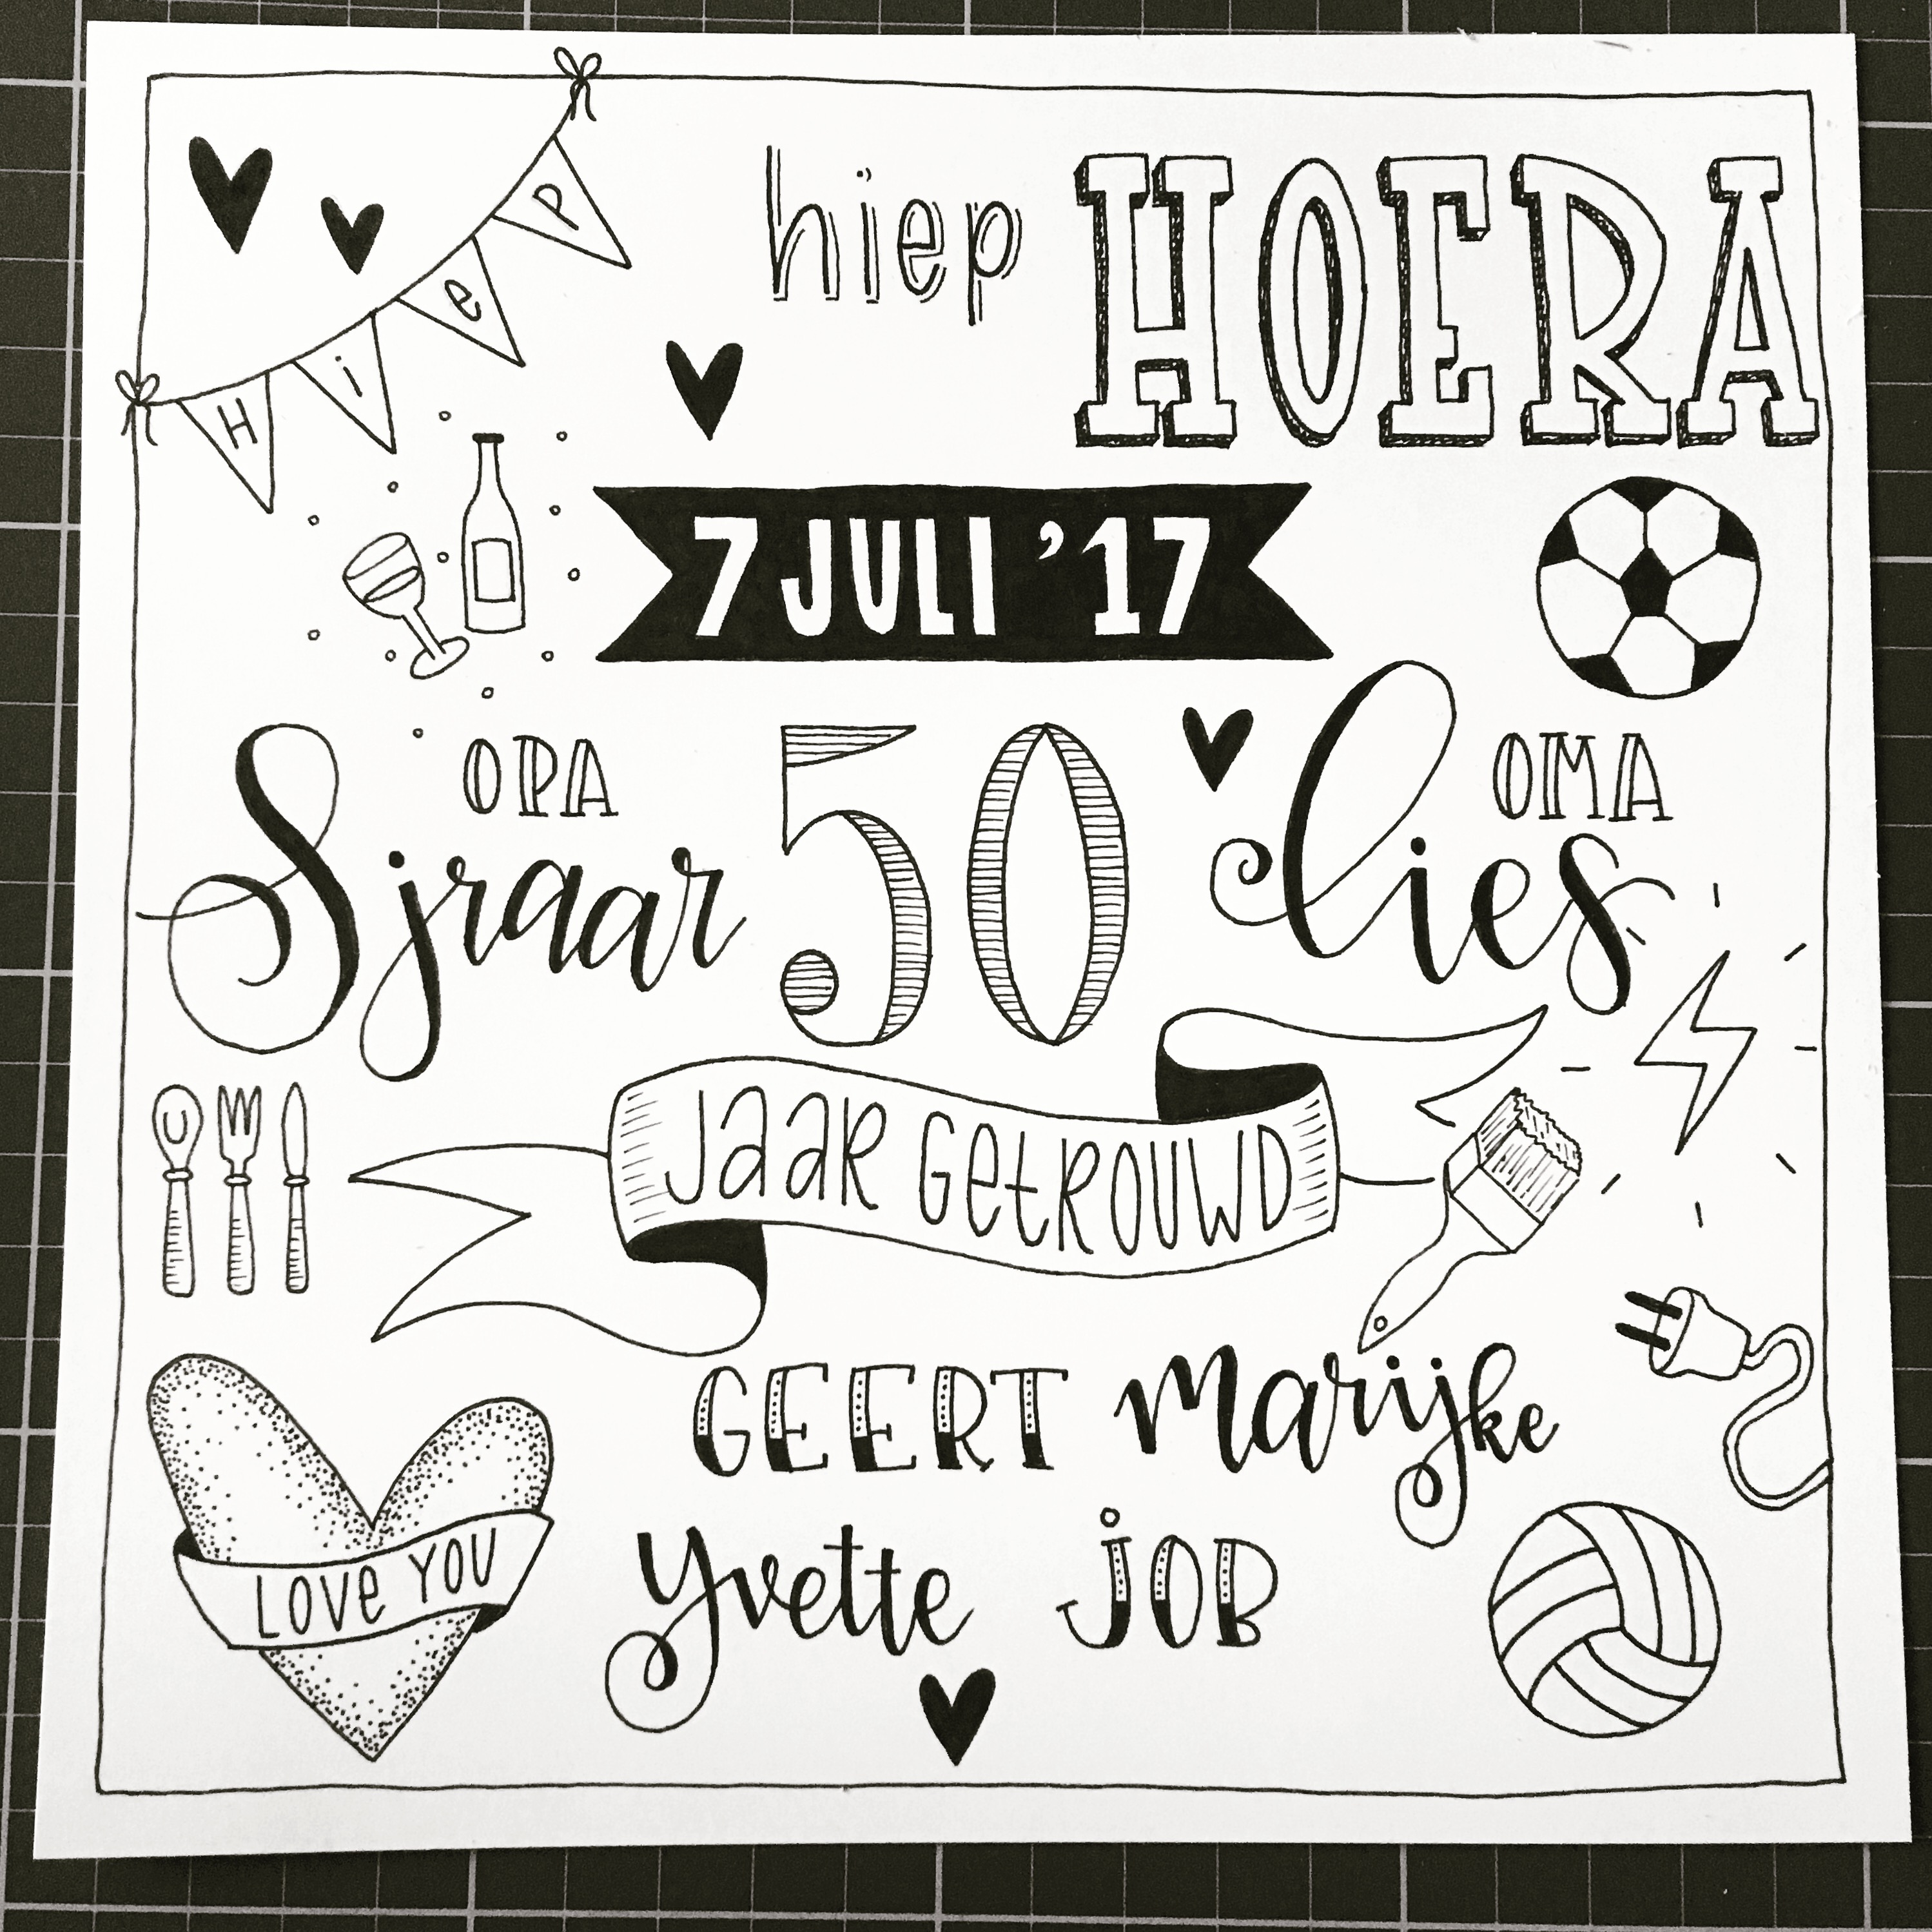 Hiep
hiep HOERA
7 JULI '17
OPA OMA
Sjraar 50 lies
Jaar Getrouwd
GEERT Marijke
LOVE YOU
Yvette JOB